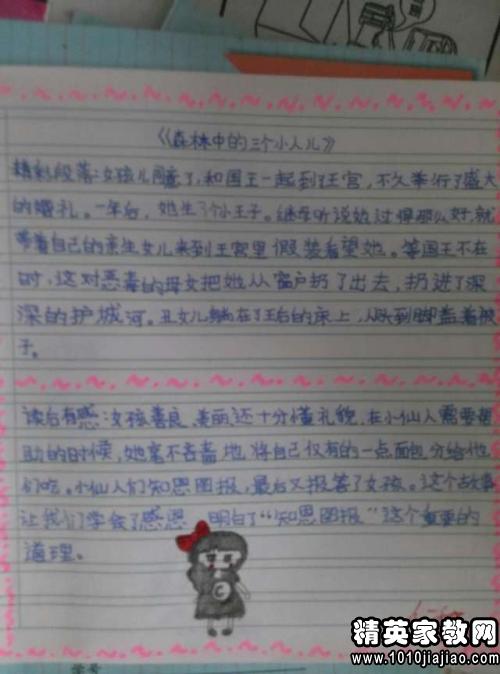 《森林中的三个小人儿》
精彩段落:女孩儿同意了,和国王一起到了王宫,不久举行了盛大
的婚礼。一年后,她生了个小王子。继母听说她过得那么好,就
带着自己的亲生女儿来到王宫里假装看望她。等国王不在
时,这对恶毒的母女把她从窗户扔了出去,扔进了深
深的护城河。丑女儿躺在了王后的床上,从头到脚盖着被
子。
读后有感:女孩善良、美丽还十分懂礼貌,在小仙人需要帮
助的时候,她毫不吝啬地将自己仅有的一点面包分给他
们吃。小仙人们知恩图报,最后又报答了女孩。这个故事
让我们学会了感恩,明白了“知恩图报”这个重要的
道理。
学号
精英家教网
http://www.1010jiajiao.com/